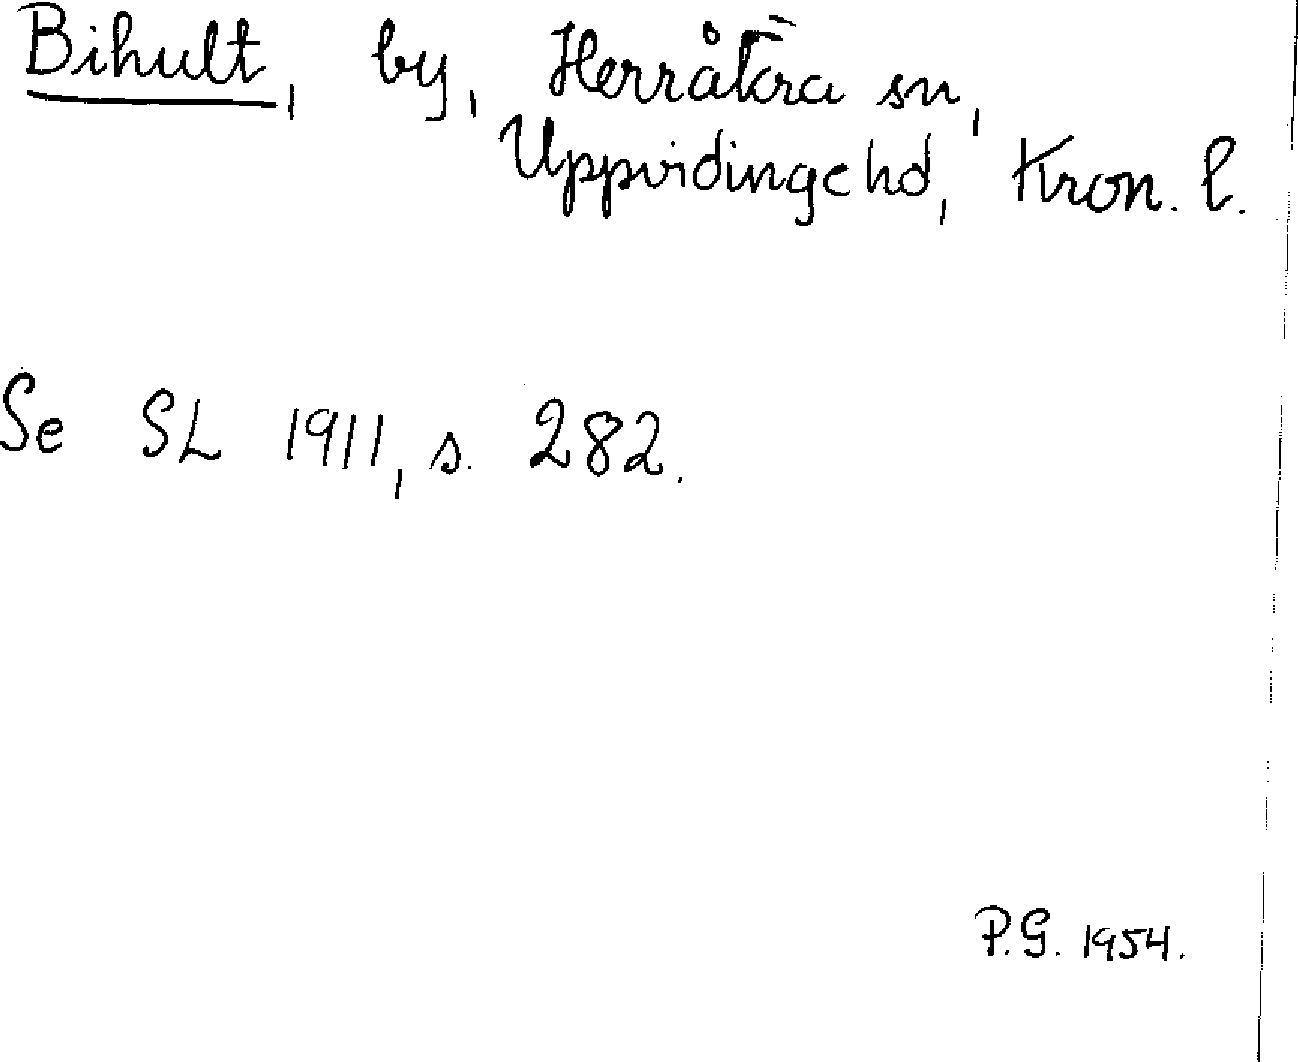 Bihult, by, Herråkra sn,
Uppvidinge hd, Kron. l.
Se SL 1911, s. 282.
P.G. 1954.